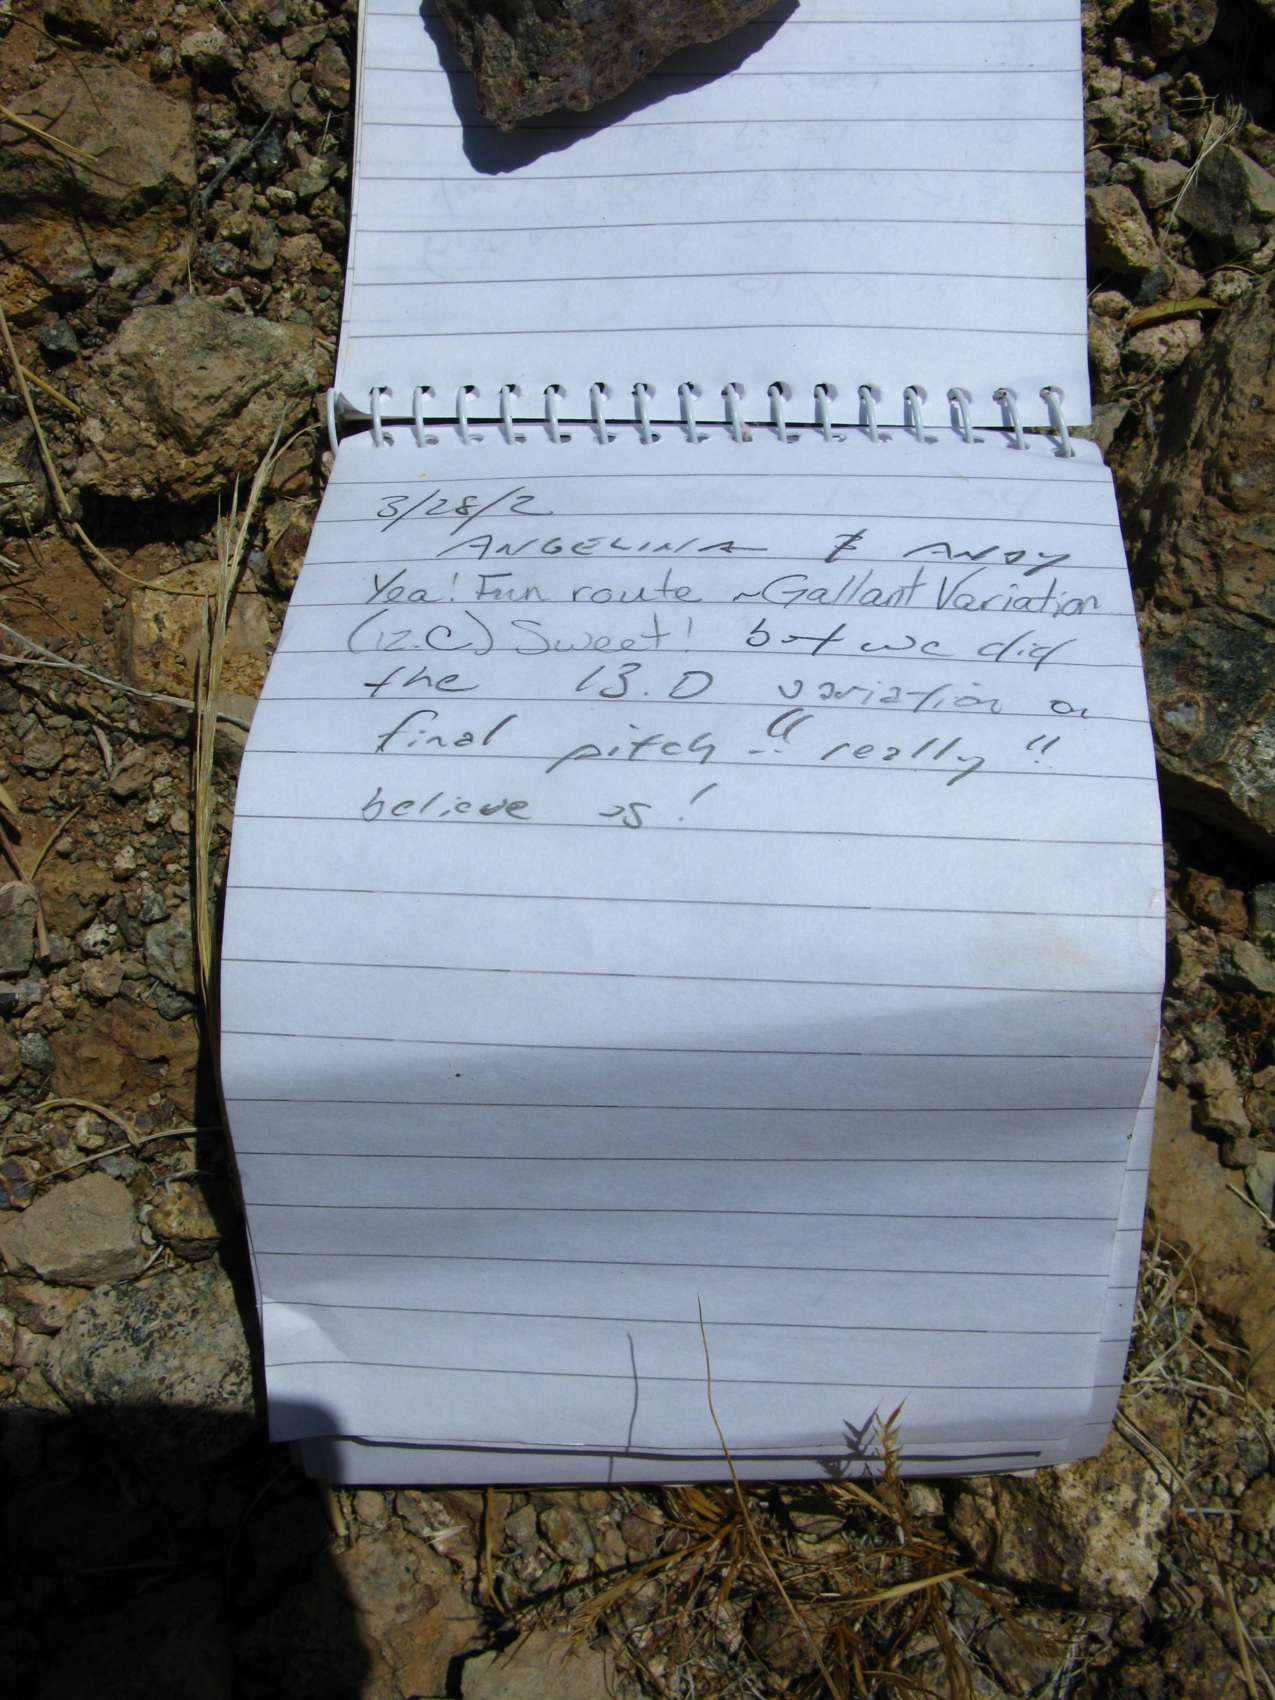 3/28/2
ANGELINA & ANDY
Yea! Fun route ~Gallant Variation
(12.C) Sweet! but we did
the 13.D variation on
final pitch !! really !!
believe us!